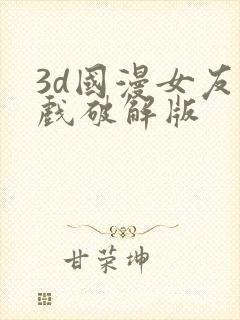 3d國漫女友
戲破解版
甘荣坤